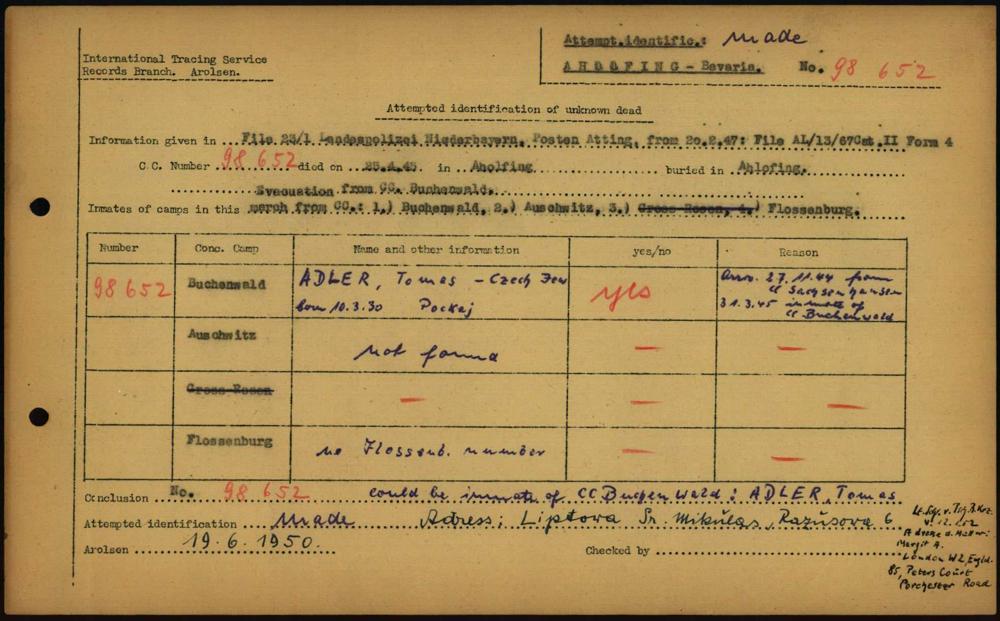 Attempt.identific.: made
International Tracing Service
Records Branch. Arolsen.
AHOLFING - Bavaria. No. 98 652
Attempted identification of unknown dead
Information given in File 23/1 Landespolizei Niederbayern, Posten Atting, from 20.2.47: File AL/13/67Cat.II Form 4
C.C. Number 98 652 died on 25.4.45 in Aholfing buried in Ahlofing.
Evacuation from CC. Buchenwald.
Inmates of camps in this march from CC.: 1.) Buchenwald, 2.) Auschwitz, 3.) Gross Rosen, 4.) Flossenburg.
Number Conc. Camp Name and other information yes/no Reason
98652 Buchenwald ADLER, Tomas - Czech Jew yes arr. 27.11.44 from
CC Sachsenhausen
born 10.3.30 31.3.45 inmate of
CC Buchenwald
Auschwitz not found — —
Gross Rosen — — —
Flossenburg no Flossenb. number — —
Conclusion No. 98 652 could be inmate of CC Buchenwald: ADLER, Tomas
Attempted identification made Adress: Liptova Sv. Mikulas, Razusova 6
Arolsen 19.6.1950. Checked by
v. 12.1.52
Margit A.
London W2, Engld.
85, Peters Court
Porchester Road